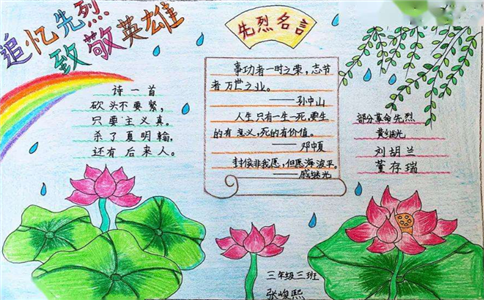 追忆先烈
致敬英雄
诗一首
砍头不要紧,
只要主义真。
杀了夏明翰,
还有后来人。
先烈名言
事功者一时之荣,志节
者万世之业。
——孙中山
人生只有一生一死,要生
的有意义,死的有价值。
——邓中夏
封侯非我愿,但愿海波平。
——戚继光
部分革命先烈
黄继光
刘胡兰
董存瑞
三年级三班
张峻熙